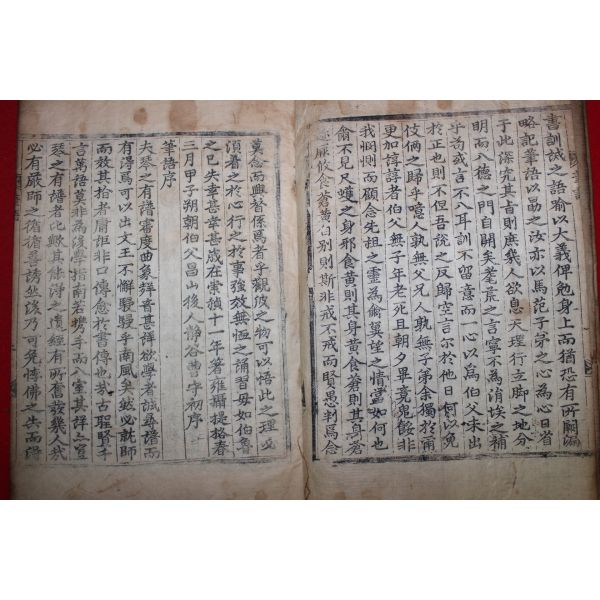 書訓誡之語喩以大義俾勉身上而猶恐有所闕漏
略記筆語以勗之汝亦以馬范子弟之心爲心日省
于此深究其旨則庶幾人欲息天理行立脚之地分
明而八德之門自開矣耄荒之言寧不爲涓埃之補
乎苟或言不入耳訓不留意而一心以爲伯父未出
於正也則不但吾說之反歸空言尔於他日何以免
伎倆之歸乎噫人孰無父兄人孰無子弟余獨於爾
更加諄諄者伯父無子年老死且朝夕畢竟鬼餒非
我惻惻而顧念先祖之靈爲爾翼望之情當如何也
爾不見尺蠖之身邪食黃則其身黃食蒼則其身蒼
亦厥攸食蒼黃白別則斯非戒不戒而賢愚判爲念
莫念而興替係焉者乎觀彼之物可以悟此之理必
須着之於心行之於事強放無怪之誦習毋如伯魯
之已失幸甚幸甚歲在崇禎十一年箸雍攝提格春
三月甲子朔朝伯父昌山後人靜谷曺守初序
筆語序
夫琴之有譜審度曲奏詳音甚詳欲學者誠尋譜而
有得焉可以出文王不懈駸駸乎南風矣然必就師
而效其拾者用詎非口傳愈於書傳也哉古聖賢千
言萬語莫非爲後學指南若携手而入室其詳之豈
琴之有譜者比歟其俤淨之遺經有所奮發幾人哉
必有嚴師之循循善誘然後乃可免悖佛之失而得